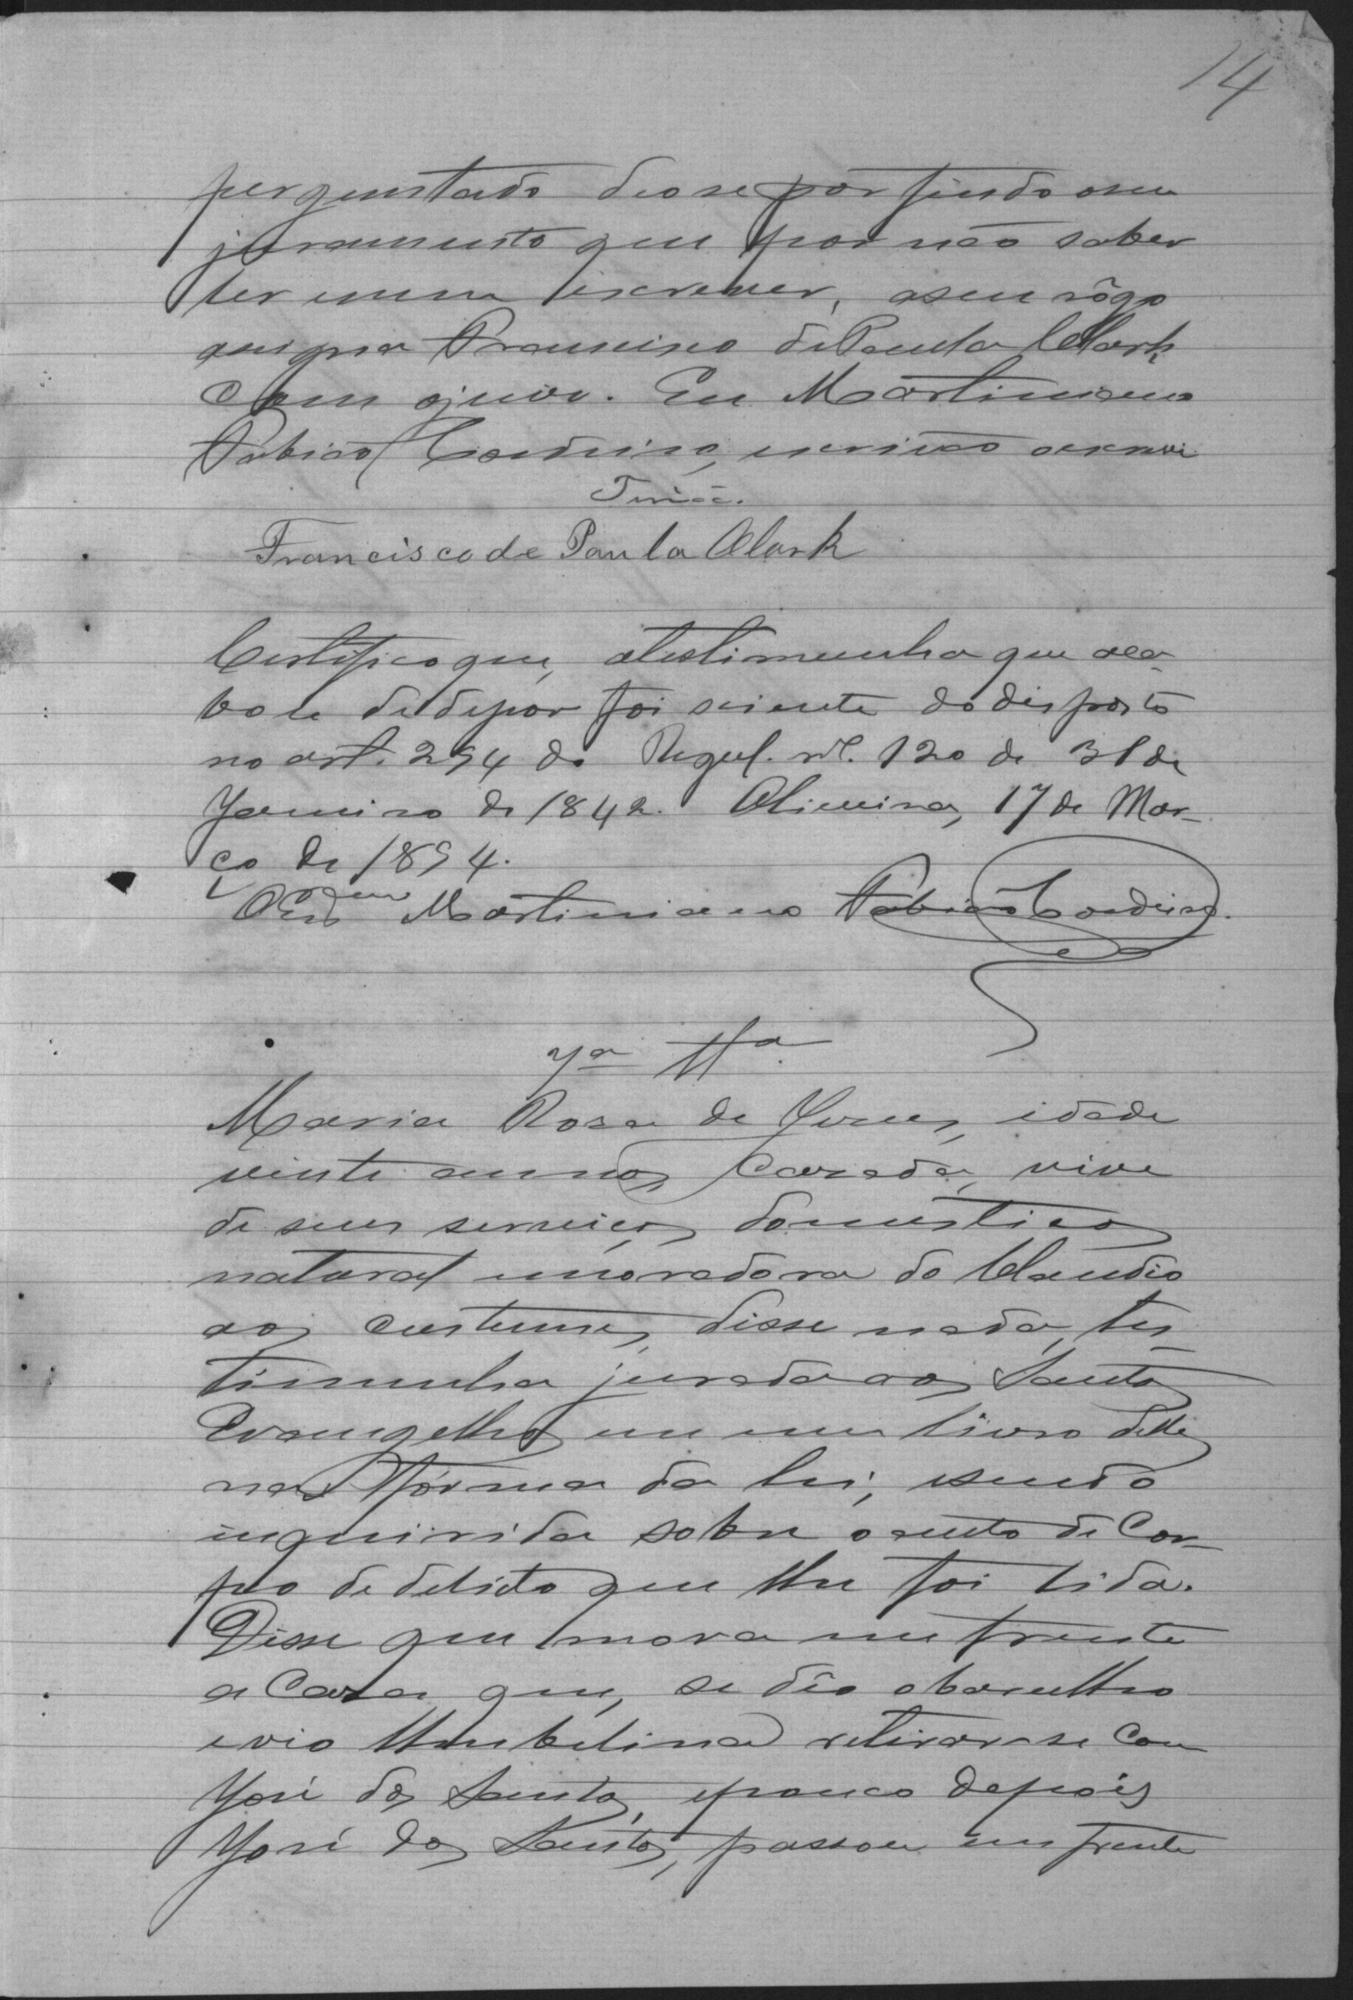 14
perguntado deo se por findo o seu
juramento que por não saber
ler nem escrever, a seu rôgo
assigna Francisco de Paula Clark
com o juiz. Eu Martiniano
Fabião Cordeiro, escrivão o escrevi
Francisco de Paula Clark
Certifico que, a testimunha que aca-
bou de depor foi sciente do disposto
no art. 294 do Regul. nº. 120 de 31 de
Janeiro de 1842. Oliveira, 17 de Mar-
ço de 1894.
Martiniano Fabião Cordeiro.
Maria Rosa de Jesus, idade
vinte annos, Cazada, vive
de seus serviços domesticos
natural e moradora do Claudio
aos custumes, disse nada, tes-
timunha jurada aos Santos
Evangelhos em um livro delles
na fórma da lei, e sendo
inquirida sobre o auto de Cor-
po de delicto que lhe foi lida.
Disse que mora em frente
a Caza que, se deo o barulho
e vio Umbelina retirar-se com
José dos Santos, e pouco depois
José dos Santos, passou em frente